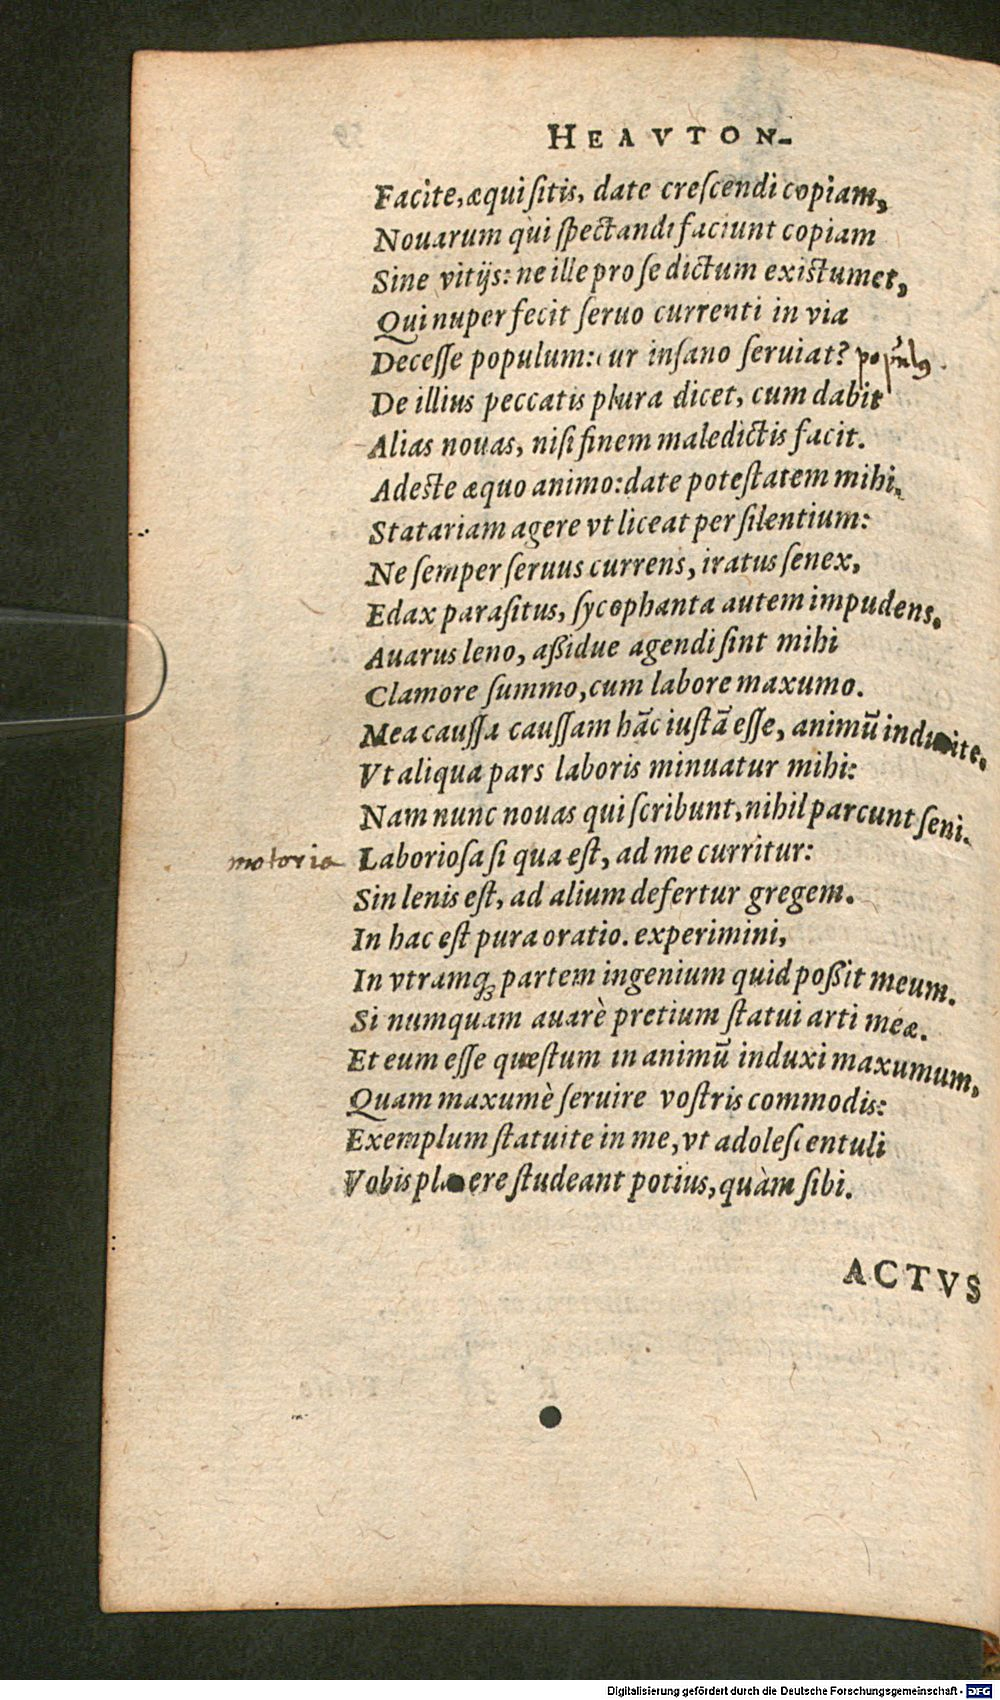 HEAVTON-
Facite, æqui ſitis, date creſcendi copiam,
Nouarum qui ſpectandi faciunt copiam
Sine vitijs: ne ille pro ſe dictum existumet,
Qui nuper fecit ſeruo currenti in via
Deceſſe populum: cur inſano ſeruiat? populus.
De illius peccatis plura dicet, cum dabit
Alias nouas, niſi finem maledictis facit.
Adeste æquo animo: date poteſtatem mihi.
Statariam agere vt liceat per ſilentium:
Ne ſemper ſeruus currens, iratus ſenex,
Edax paraſitus, ſycophanta autem impudens.
Auarus leno, aßidue agendi ſint mihi
Clamore ſummo, cum labore maxumo.
Mea cauſſa cauſſam hāc iuſtā eſſe, animū inducite.
Vt aliqua pars laboris minuatur mihi:
Nam nunc nouas qui ſcribunt, nihil parcunt ſeni.
motoria Laborioſa ſi qua eſt, ad me curritur:
Sin lenis eſt, ad alium defertur gregem.
In hac eſt pura oratio. experimini,
In vtramq; partem ingenium quid poßit meum.
Si numquam auarè pretium ſtatui arti meæ.
Et eum eſſe quæſtum in animū induxi maxumum,
Quam maxumè ſeruire voſtris commodis:
Exemplum ſtatuite in me, vt adoleſcentuli
Vobis placere ſtudeant potius, quàm ſibi.
ACTVS
Digitalisierung gefördert durch die Deutsche Forschungsgemeinschaft - DFG